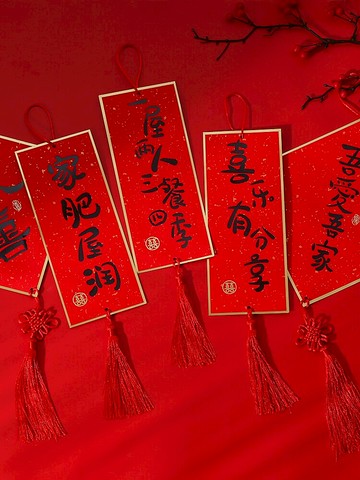 喜
家肥屋润
一屋两人三餐四季
喜乐有分享
吾爱吾家
囍
囍
囍
囍